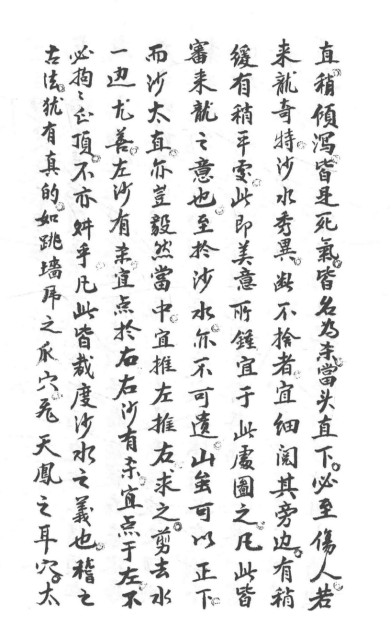 直稍傾瀉皆是死氣皆名為杀當头直下必至傷人若
来龍奇特沙水秀異斷不捨者宜细阅其旁边有稍
緩有稍平處此即美意所鍾宜于此處圖之凡此皆
審来龍之意也至於沙水亦不可遺山雖可以正下
而沙太直亦豈毅然當中宜推左推右求之剪去水
一边尤善左沙有杀宜点於右右沙有杀宜点于左不
必拘〻正頂不亦姧乎凡此皆裁度沙水之義也稽之
古法犹有真的如跳墙馬之爪穴飛天鳳之耳穴太